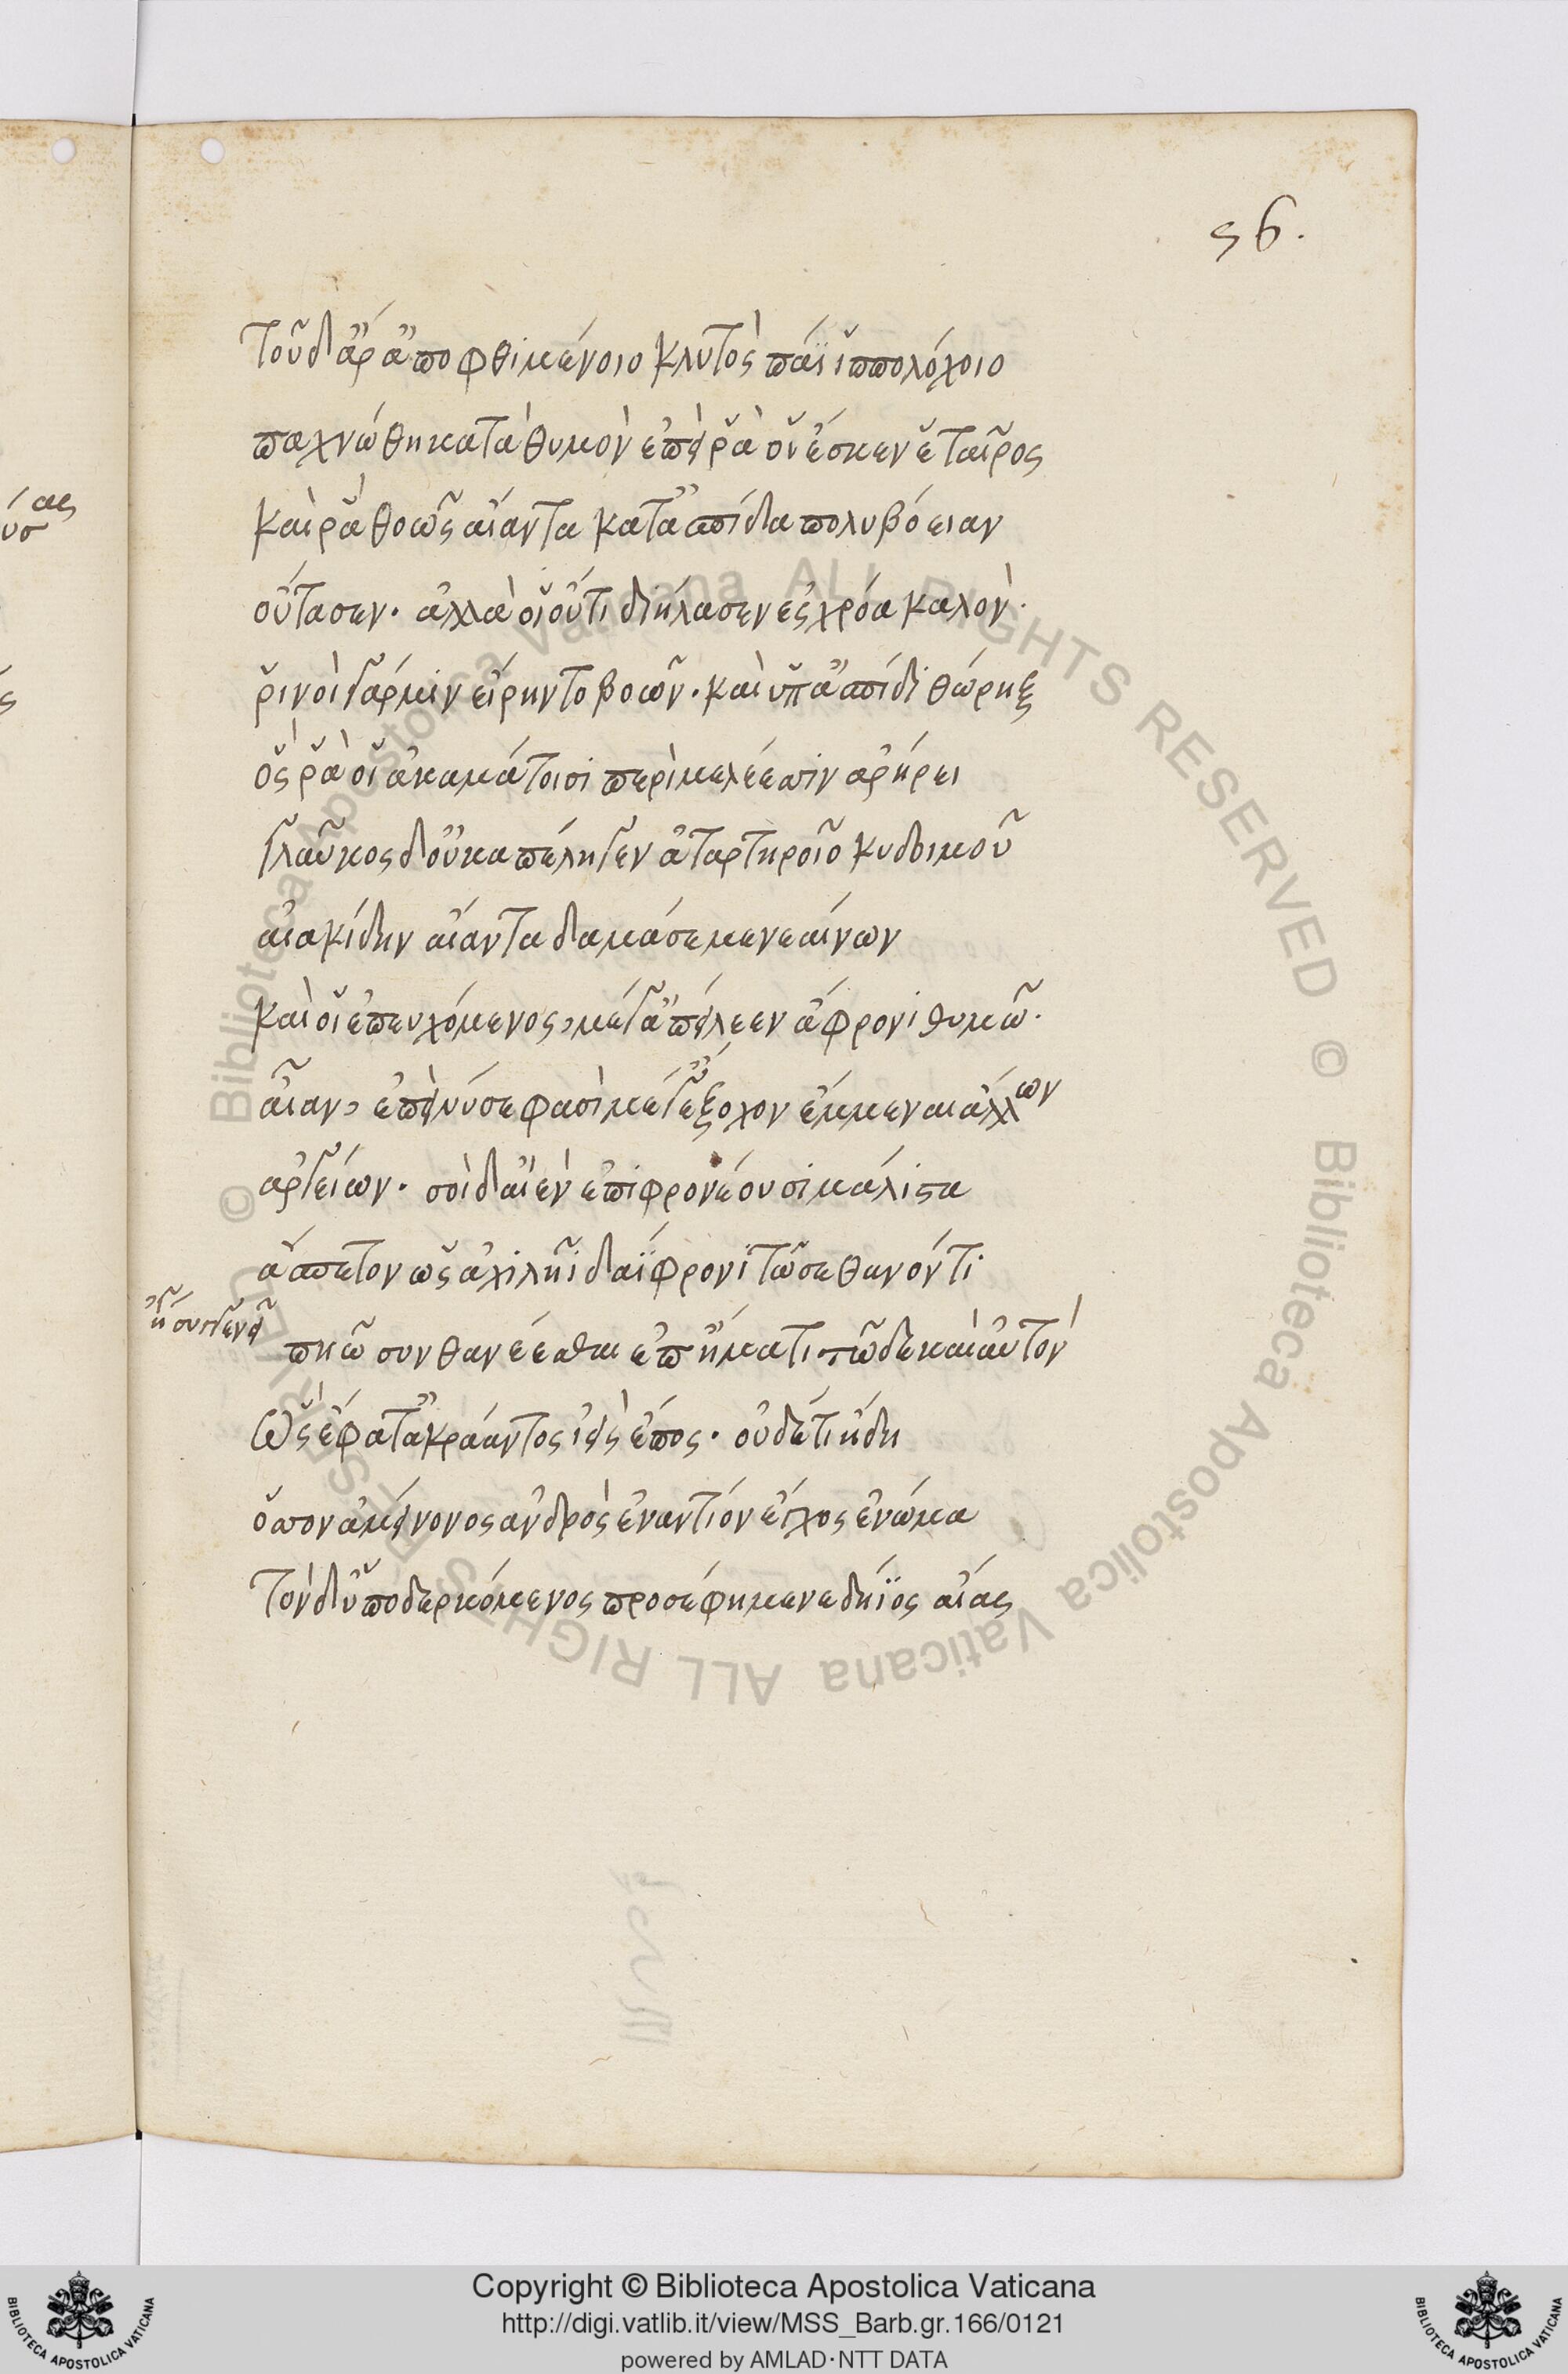 56.
τοῦ δ' ἄρ' ἀποφθιμένοιο κλυτὸς πάϊς ἱππολόχοιο
παχνώθη κατὰ θυμὸν ἐπεὶ ῥά οἱ ἔσκεν ἑταῖρος
καί ῥα θοῶς αἴαντα κατ' ἀσπίδα πολυβόειαν
οὔτασεν· ἀλλά οἱ οὔτι διήλασεν ἐς χρόα καλόν·
ῥινοὶ γάρ μιν εἴρηντο βοῶν· καὶ ὑπ' ἀσπίδι θώρηξ
ὅς ῥά οἱ ἀκαμάτοισι περὶ μελέεσσιν ἀρήρει
γλαῦκος δ' οὐκ ἀπέληγεν ἀταρτηροῖο κυδοιμοῦ
αἰακίδην αἴαντα δαμάσαι μενεαίνων
καί οἱ ἐπευχόμενος, μέγ' ἀπείλεεν ἄφρονι θυμῶ·
αἶαν, ἐπεὶ νύ σέ φασι μέγ' ἔξοχον ἔμμεναι ἄλλων
ἀργείων· σοὶ δ' αἰὲν ἐπιφρονέουσι μάλιστα
ἄσπετον ὡς ἀχιλῆϊ δαΐφρονι τῶ σε θανόντι
πκῶ συνθανέεσθαι ἐπ' ἤματι τῶδε καὶ αὐτόν
ὣς ἔφατ' ἀκράαντος ἱεὶς ἔπος· οὐδέ τι ἤδη
ὅσσον ἀμείνονος ἀνδρὸς ἐναντίον ἔγχος ἐνώμα
τὸν δ' ὑποδερκόμενος προσέφη μενεδήϊος αἴας
Copyright © Biblioteca Apostolica Vaticana
http://digi.vatlib.it/view/MSS_Barb.gr.166/0121
powered by AMLAD·NTT DATA
BIBLIOTECA APOSTOLICA VATICANA
BIBLIOTECA APOSTOLICA VATICANA
© Biblioteca Apostolica Vaticana ALL RIGHTS RESERVED © Biblioteca Apostolica Vaticana ALL RIGHTS RESERVED